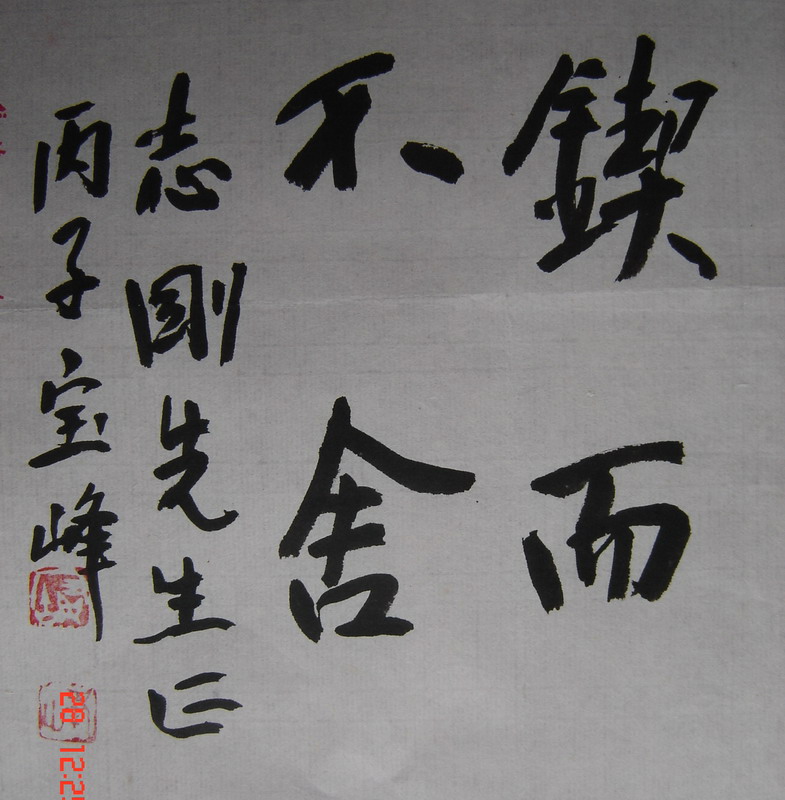 鍥而
不舍
志剛先生正
丙子宝峰
28 12:25